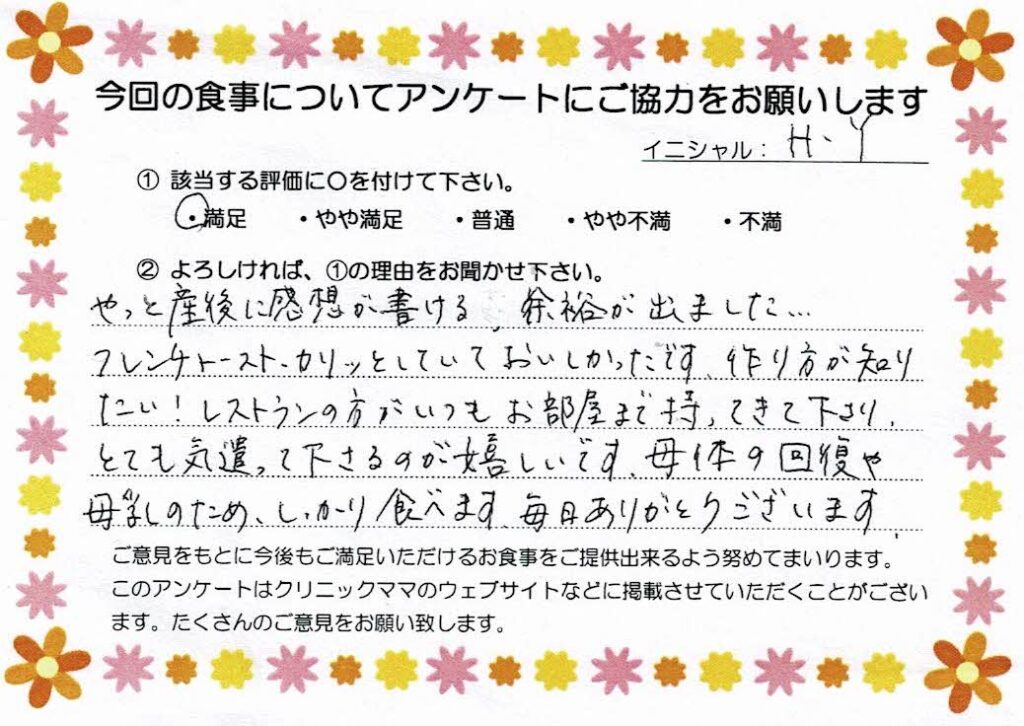 今回の食事についてアンケートにご協力をお願いします
イニシャル： H.Y
① 該当する評価に〇を付けて下さい。
・満足 ・やや満足 ・普通 ・やや不満 ・不満
② よろしければ、①の理由をお聞かせ下さい。
やっと産後に感想が書ける、余裕が出ました…
フレンチトースト、カリッとしていておいしかったです、作り方が知り
たい！レストランの方がいつもお部屋まで持ってきて下さり、
とても気遣って下さるのが嬉しいです、母体の回復や
母乳のため、しっかり食べます、毎日ありがとうございます
ご意見をもとに今後もご満足いただけるお食事をご提供出来るよう努めてまいります。
このアンケートはクリニックママのウェブサイトなどに掲載させていただくことがござい
ます。たくさんのご意見をお願い致します。